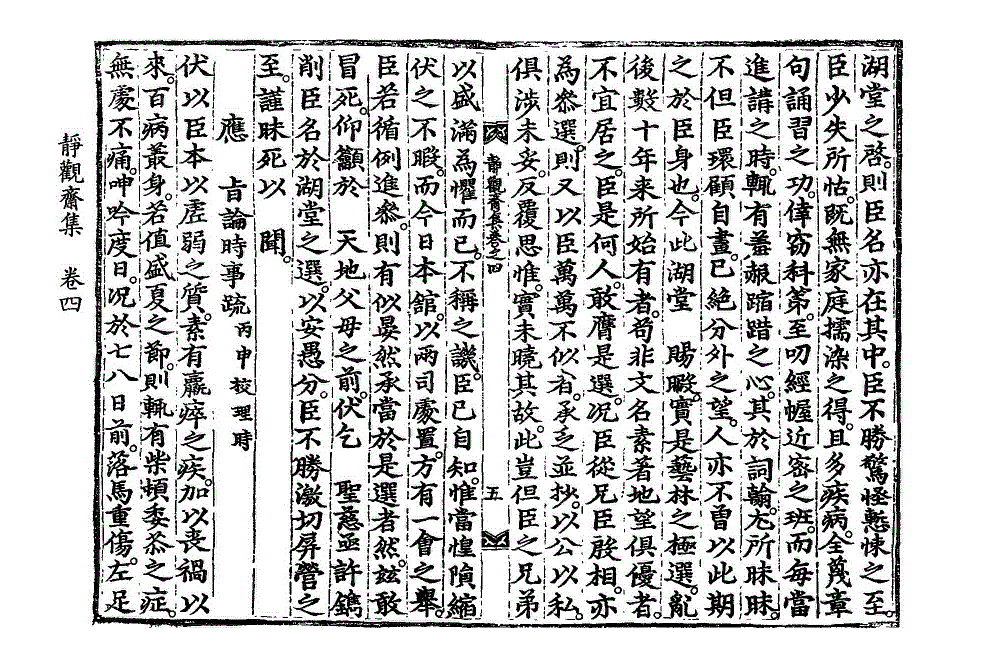 湖堂之啓。則臣名亦在其中。臣不勝驚怪慙悚之至。
臣少失所怙。旣無家庭擩染之得。且多疾病。全蔑章
句誦習之功。倖窃科第。至叨經幄近密之班。而每當
進講之時。輒有羞赧蹜踖之心。其於詞翰。尤所昧昧。
不但臣環顧自畫。已絶分外之望。人亦不曾以此期
之於臣身也。今此湖堂　賜暇。實是藝林之極選。亂
後數十年來所始有者。苟非文名素著地望俱優者。
不宜居之。臣是何人。敢膺是選。况臣從兄臣殷相。亦
爲參選。則又以臣萬萬不似者。承乏並抄。以公以私。
俱涉未妥。反覆思惟。實未曉其故。此豈但臣之兄弟
靜觀齋集卷之四
五
以盛滿爲懼而已。不稱之譏。臣已自知。惟當惶隕縮
伏之不暇。而今日本館。以兩司處置。方有一會之擧。
臣若循例進參。則有似晏然承當於是選者然。玆敢
冒死。仰籲於　天地父母之前。伏乞　聖慈亟許鐫
削臣名於湖堂之選。以安愚分。臣不勝激切屛營之
至。謹昧死以　聞。
應　旨論時事疏 丙申校理時
伏以臣本以虛弱之質。素有羸瘁之疾。加以喪禍以
來。百病叢身。若值盛夏之節。則輒有柴頓委苶之症。
無處不痛。呻吟度日。况於七八日前。落馬重傷。左足
靜觀齋集　卷四